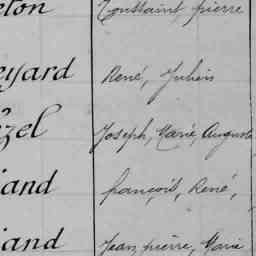 eton Toussaint pierre
eyard René, Julien
zel Joseph, Marie, Auguste
iand françois, René,
iand Jean pierre, Marie